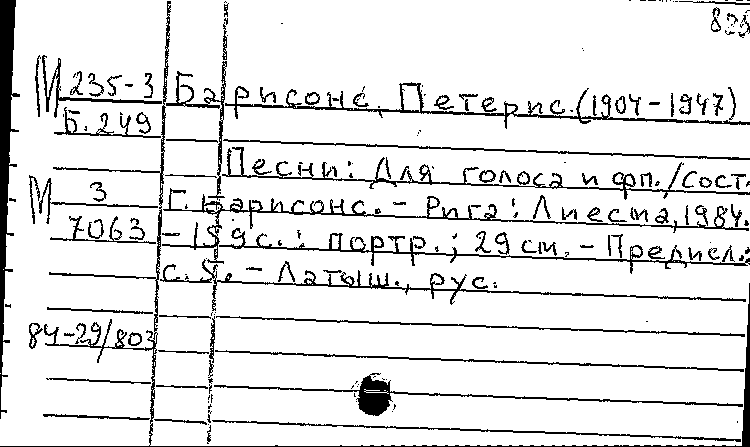 М 235-3 Барисонс, Петерис. (1904-1947)
Б. 249
Песни: Для голоса и фп. / Сост.
М 3 Г. Барисонс. - Рига: Лиесма, 1984.
7063 - 159 с.: портр.; 29 см. - Предисл.:
с. 5. - Латыш., рус.
84-29/803